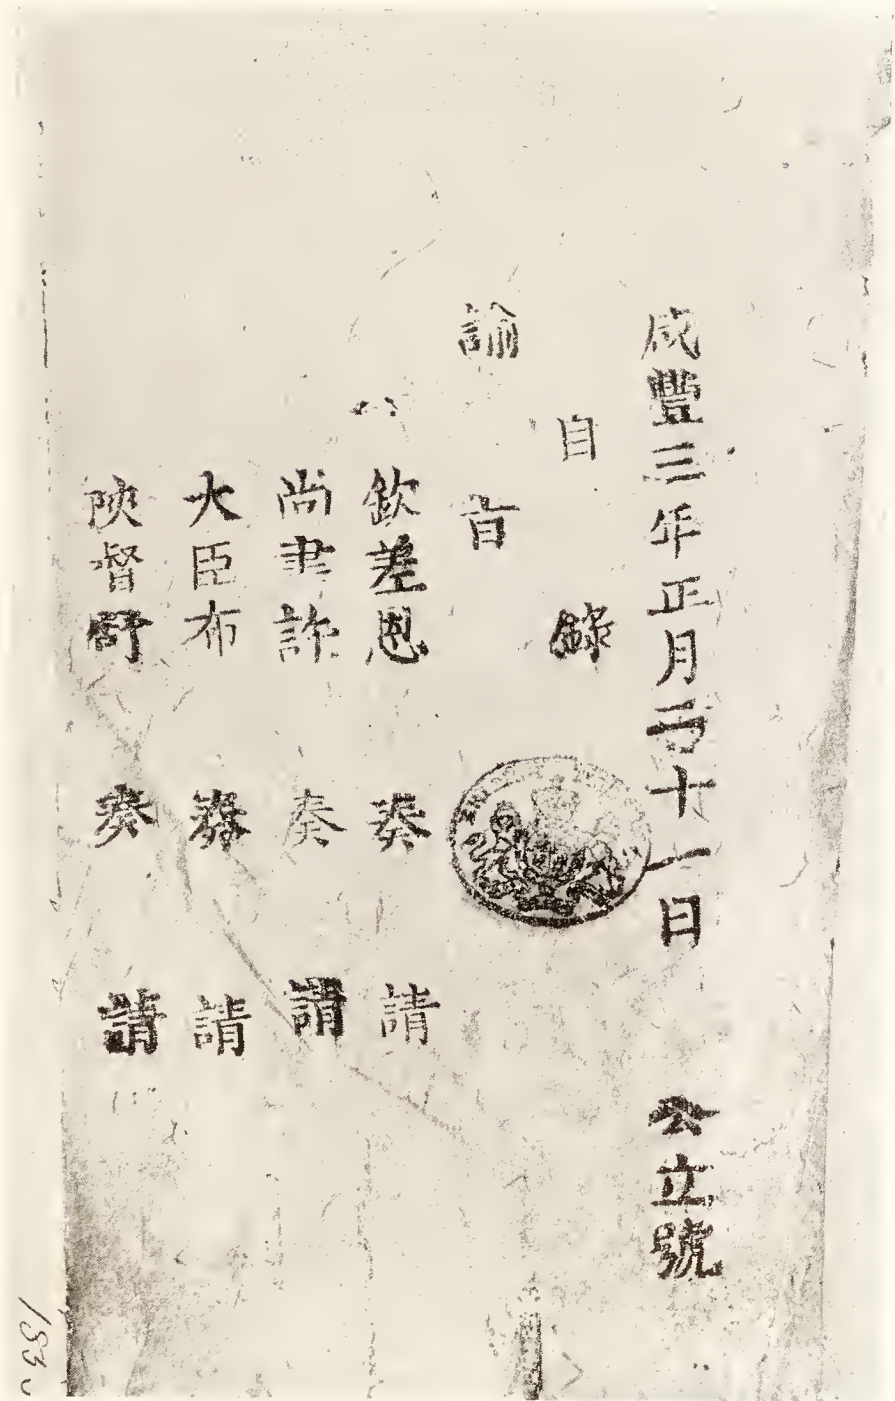 咸豐三年正月二十一日 公立號
目錄
諭旨
欽差恩 奏請
尚書許 奏請
大臣布 奏請
陝督舒 奏請
183